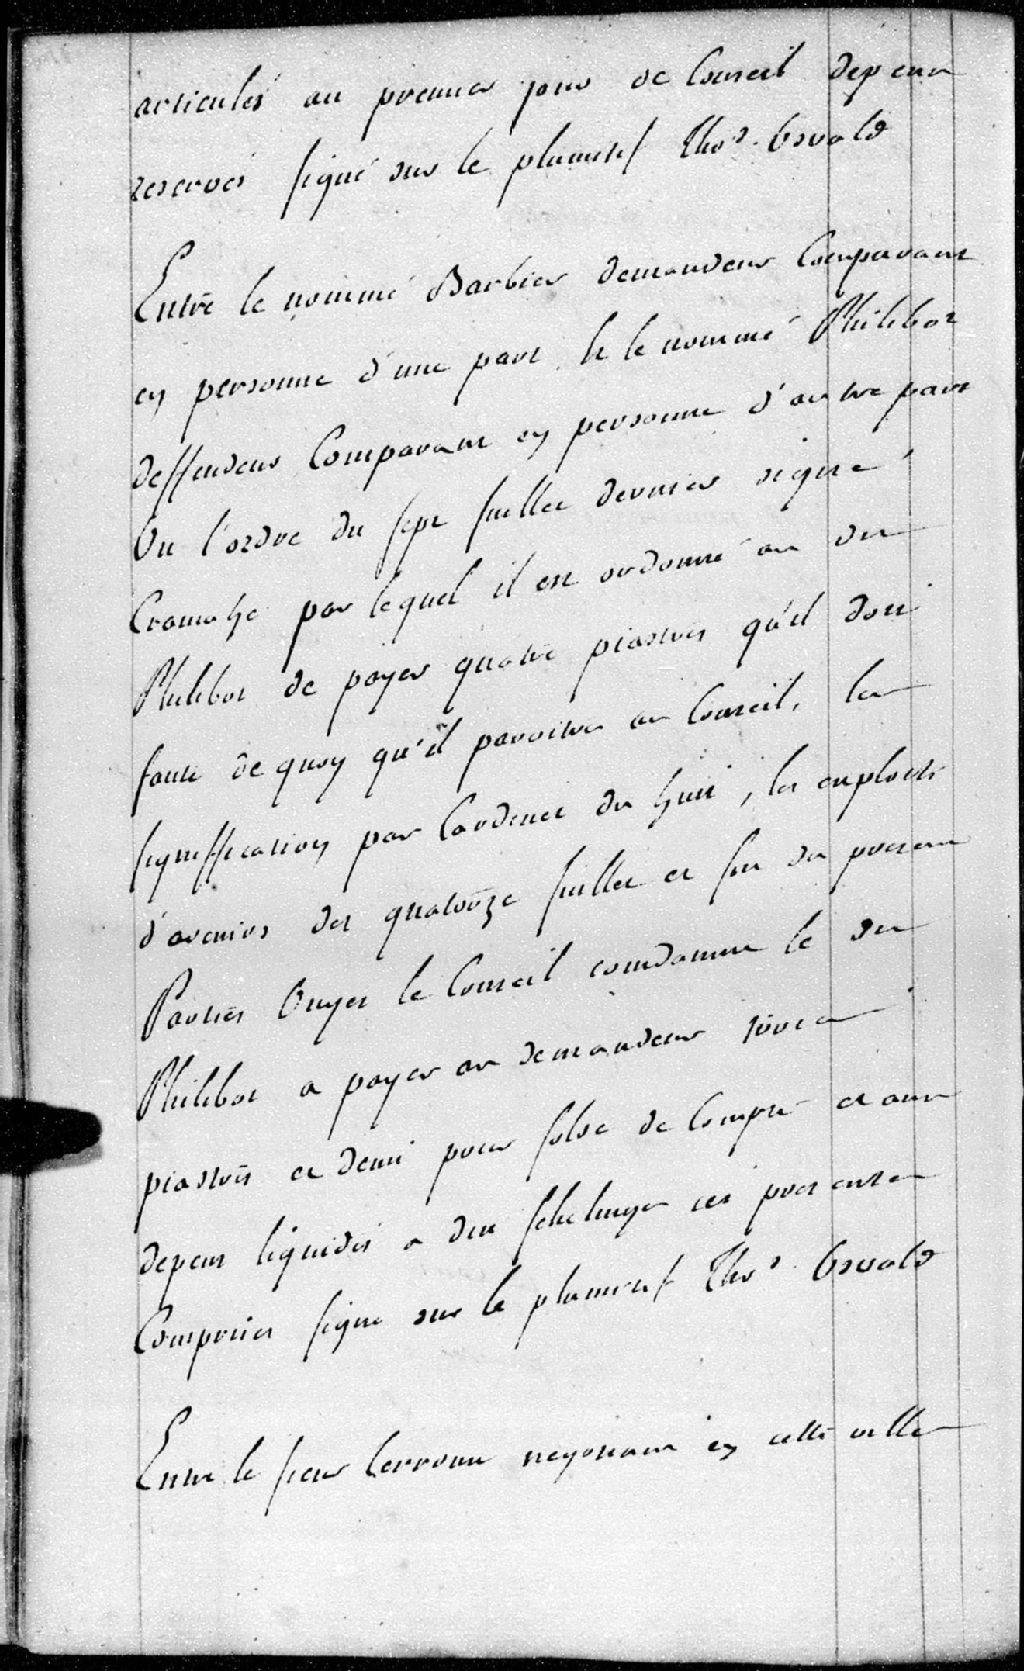 articulés au premier jour de Conseil depens
reservés signé sur le plumitif Thos. Osvald
Entre le nommé Barbier demandeur Comparant
en personne d'une part et le nommé Philibot
deffendeur Comparant en personne d'autre part
Vu l'ordre du sept juillet dernier signé
Cramahé par lequel il est ordonné au dit
Philibot de payer quatre piastres qu'il doit
faute de quoy qu'il paroitra au Conseil, la
signiffication par du huit, les exploits
d'avenirs des quatorze juillet et six du present
Parties Ouyes le Conseil condamne le dit
Philibot a payer au demandeur trois
piastres et demi pour solde de Compte et aux
depens liquidés a dix schelings ces presentes
Comprises signé sur le plumitif Thos. Osvald
Entre le sieur negotiant en cette ville